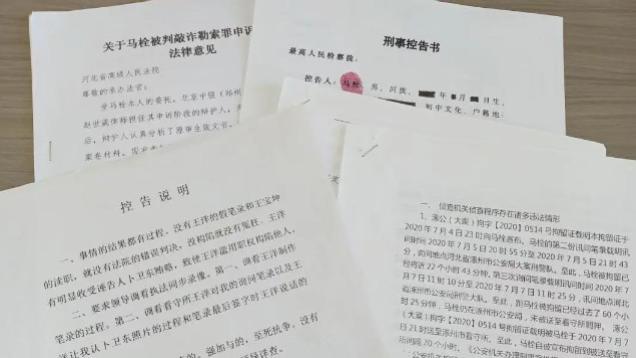 关于马栓被判敲诈勒索罪申诉
法律意见
河北省高级人民法院
尊敬的承办法官：
受马栓本人的委托，北京中银（郑州
赵世威律师担任其申诉阶段的辩护人，
后，辩护人认真分析了原审生效文书、
案卷材料，
刑事控告书
最高人民检察院：
控告人：马栓，男，汉族，
月 日生，
初中文化，户籍地：
控告说明
一、事情的结果都有过程。没有王洋的假笔录和王宝坤
的渎职，就没有法院的错误判决。没构陷就没有冤狱。王洋
有明显收受诬告人卜卫东贿赂，致使王洋滥用职权构陷他人，
二、要求领导调看执法同步录像。第一、调看王洋制作
笔录的过程。第二、调看看守所王洋对我的询问笔录以及王
洋让我认卜卫东照片的过程和笔录最后签字时王洋说话的
的、强加与的、至死抗争。没有
一、侦查机关侦查程序存在诸多违法情形
1、涿公（大案）拘字【2020】0514 号拘留证载明本拘留证于
2020 年 7 月 4 日 23 时向马栓宣布。马栓的第二份讯问笔录载明讯
问时间 2020 年 7 月 5 日 20 时 55 分至 2020 年 7 月 5 日 21 时 43
分，询问地点河北省涿州市公安局大案刑警队。至此，马栓被拘留已
经将近 22 个小时 43 分钟，第三次询问笔录载明讯问时间 2020 年 7
月 7 日 10 时 6 分至 2020 年 7 月 7 日 11 时 25 分，讯问地点河北
省涿州市公安局刑警大队。至此，距马栓被拘留已经过去了 60 个小
时 25 分钟，马栓仍在涿州市公安局，未被送至看守所羁押，涿公
（大案）拘字【2020】0514 号拘留证载明被马栓于 2020 年 7 月 7
日 21 时送至涿州市看守所。至此，马栓自被宣布拘留到被送至看守